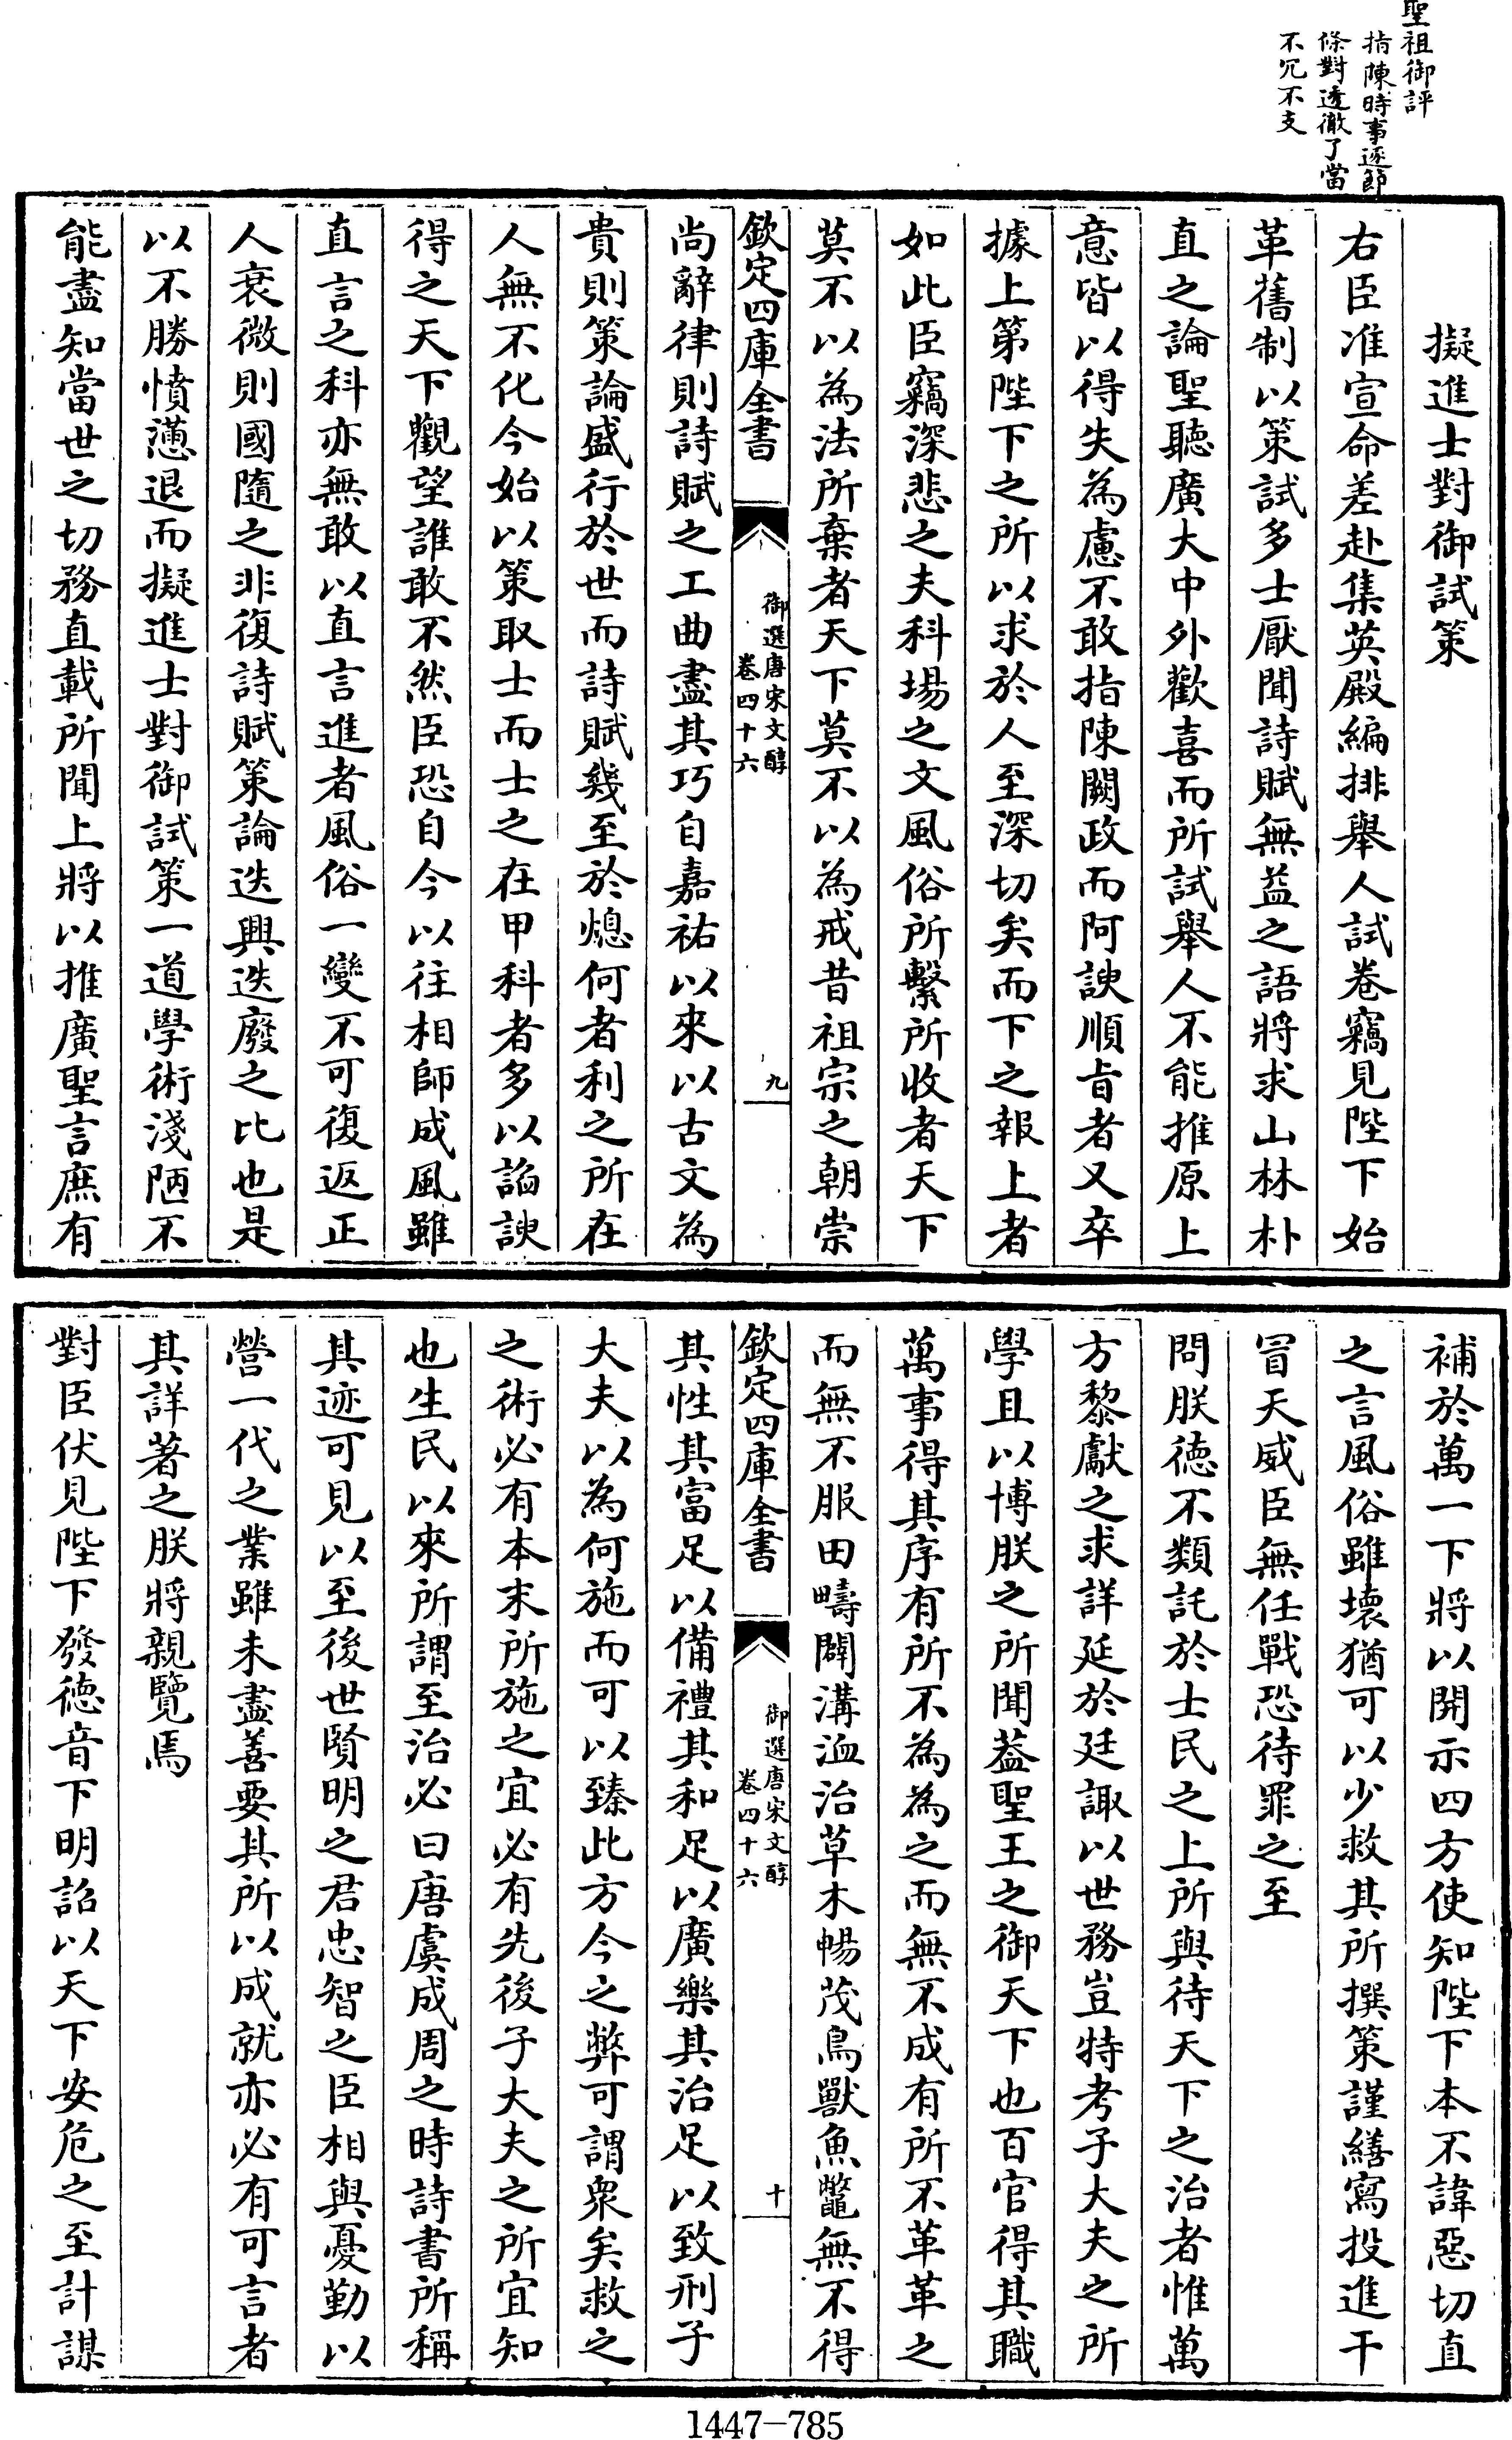 聖祖御評
指陳時事逐節
條對透徹了當
不冗不支
擬進士對御試策
右臣准宣命差赴集英殿編排舉人試卷竊見陛下始
革舊制以策試多士厭聞詩賦無益之語將求山林朴
直之論聖聽廣大中外歡喜而所試舉人不能推原上
意皆以得失為慮不敢指陳闕政而阿諛順旨者又卒
據上第陛下之所以求於人至深切矣而下之報上者
如此臣竊深悲之夫科場之文風俗所繫所收者天下
莫不以為法所棄者天下莫不以為戒昔祖宗之朝崇
欽定四庫全書
御選唐宋文醇
卷四十六
九
尚辭律則詩賦之工曲盡其巧自嘉祐以來以古文為
貴則策論盛行於世而詩賦幾至於熄何者利之所在
人無不化今始以策取士而士之在甲科者多以謟諛
得之天下觀望誰敢不然臣恐自今以往相師成風雖
直言之科亦無敢以直言進者風俗一變不可復返正
人衰微則國隨之非復詩賦策論迭興迭廢之比也是
以不勝憤懣退而擬進士對御試策一道學術淺陋不
能盡知當世之切務直載所聞上將以推廣聖言庶有
補於萬一下將以開示四方使知陛下本不諱惡切直
之言風俗雖壞猶可以少救其所撰策謹繕寫投進干
冒天威臣無任戰恐待罪之至
問朕德不類託於士民之上所與待天下之治者惟萬
方黎獻之求詳延於廷諏以世務豈特考子大夫之所
學且以博朕之所聞葢聖王之御天下也百官得其職
萬事得其序有所不為為之而無不成有所不革革之
而無不服田疇闢溝洫治草木暢茂鳥獸魚鼈無不得
欽定四庫全書
御選唐宋文醇
卷四十六
十
其性其富足以備禮其和足以廣樂其治足以致刑子
大夫以為何施而可以臻此方今之弊可謂衆矣救之
之術必有本末所施之宜必有先後子大夫之所宜知
也生民以來所謂至治必曰唐虞成周之時詩書所稱
其迹可見以至後世賢明之君忠智之臣相與憂勤以
營一代之業雖未盡善要其所以成就亦必有可言者
其詳著之朕將親覽焉
對臣伏見陛下發德音下明詔以天下安危之至計謀
1447-785